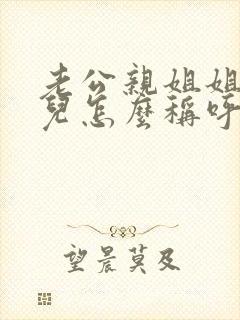 老公親姐姐
兒怎麼稱呼
望晨莫及